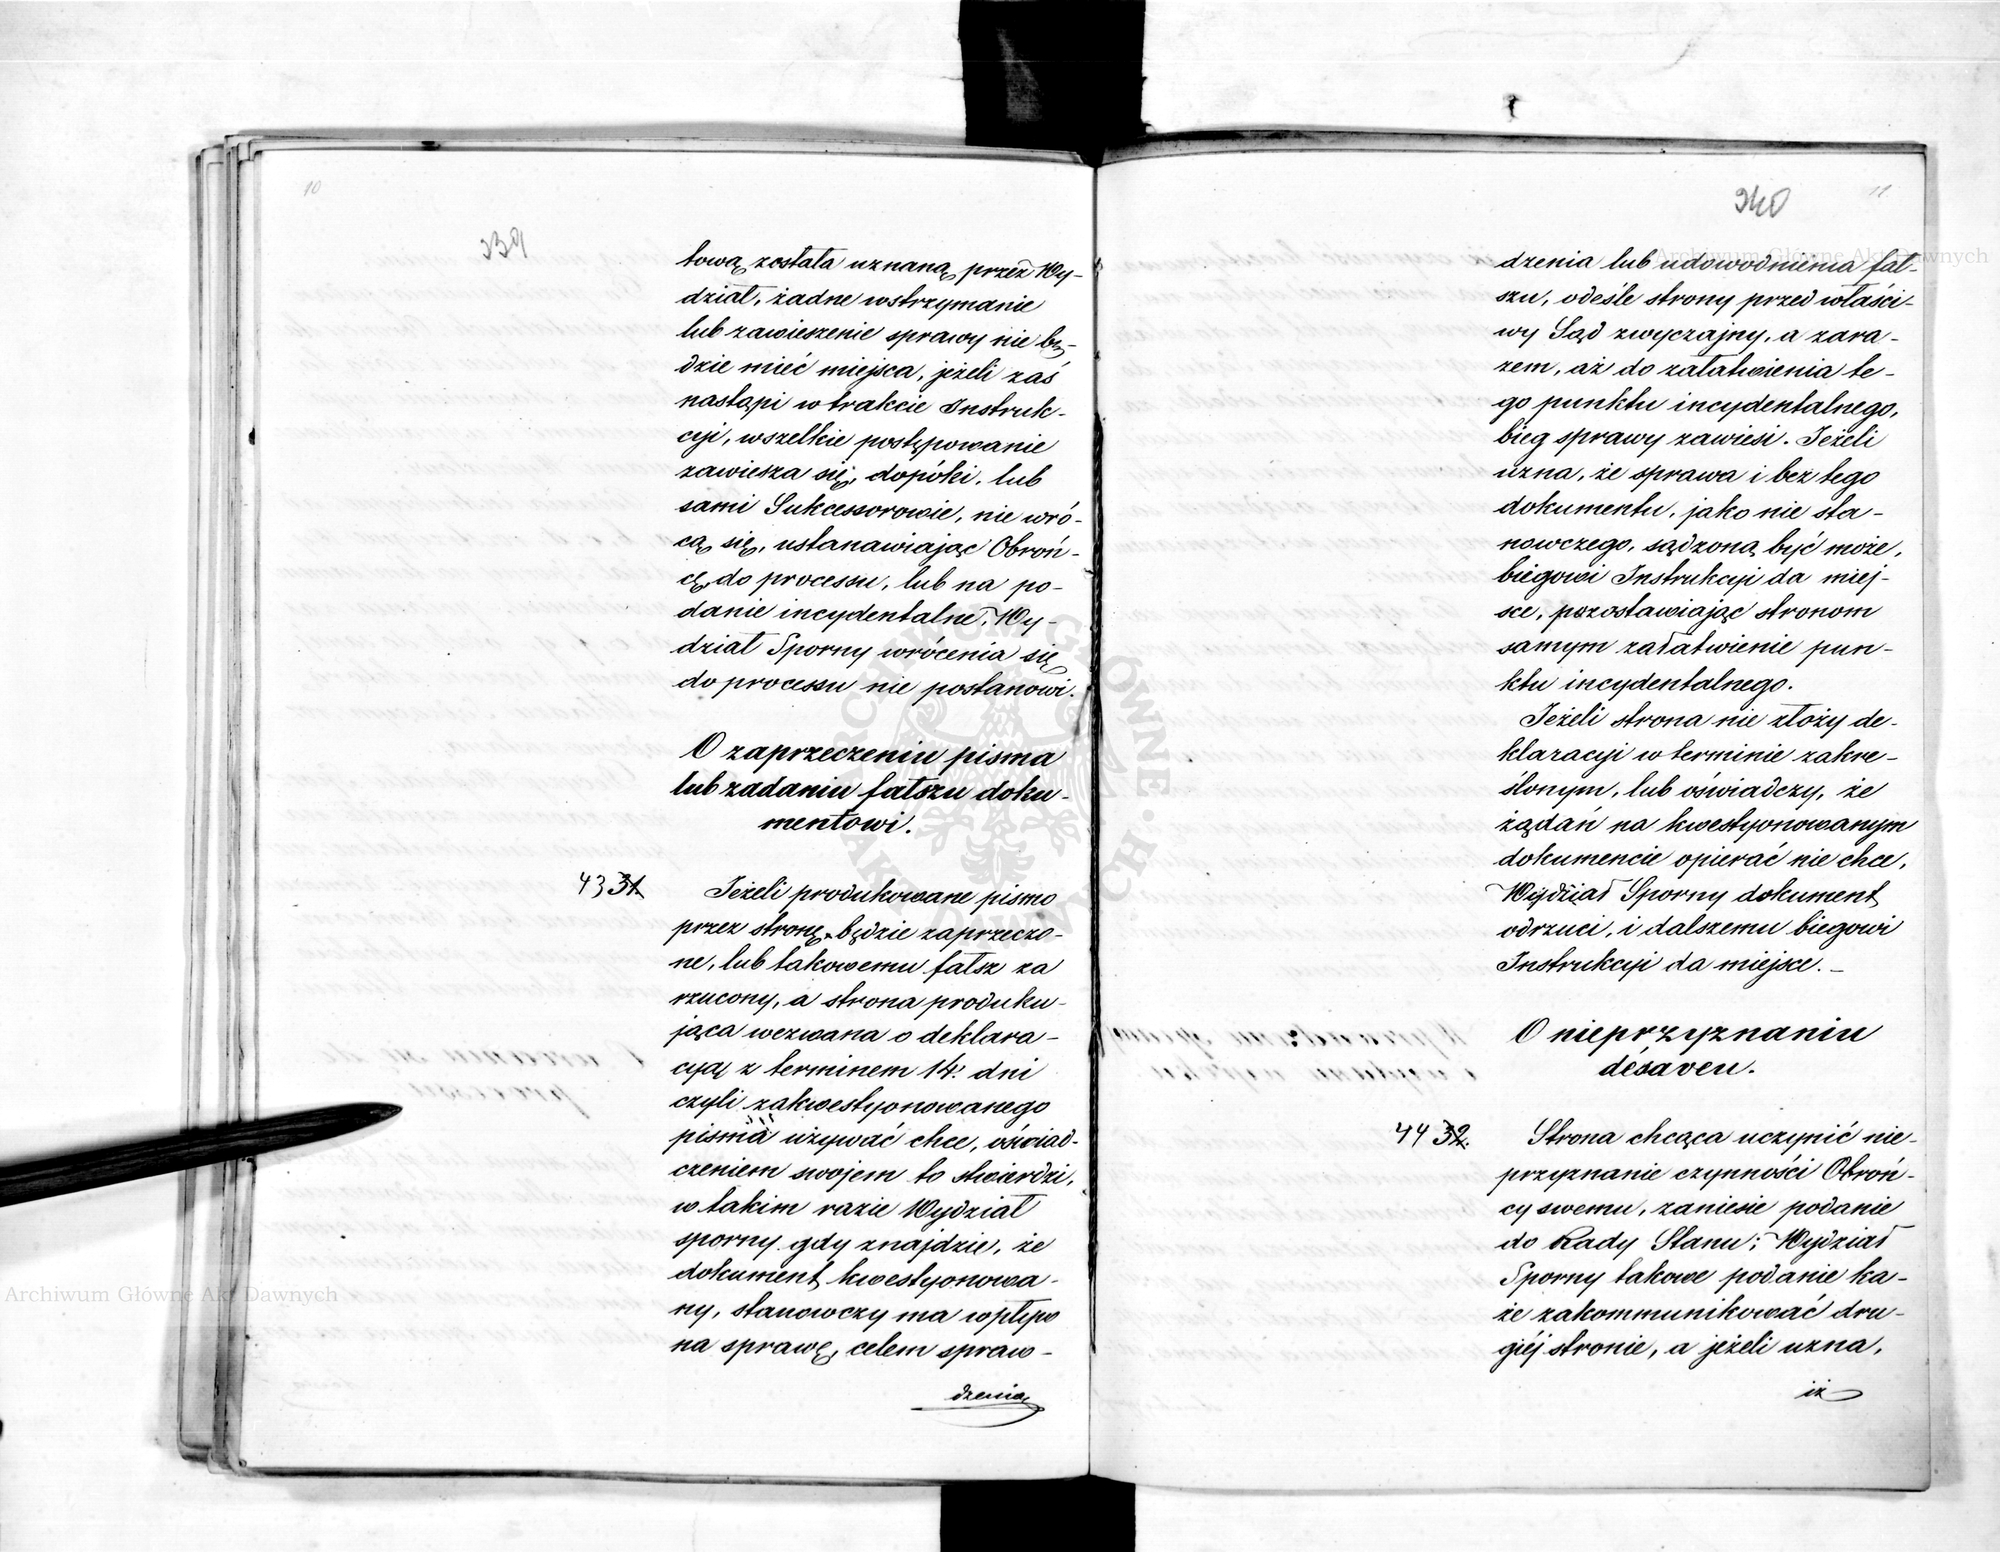 10
339
tową została uznaną przez Wy-
dział, żadne wstrzymanie
lub zawieszenie sprawy nie bę-
dzie mieć miejsca, jeżeli zaś
nastąpi w trakcie Instruk-
cyi, wszelkie postępowanie
zawiesza się, dopóki, lub
sami Sukcessorowie, nie wró-
cą się, ustanawiając Obroń-
cę do processu, lub na po-
danie incydentalne, Wy-
dział Sporny wrócenia się
do processu nie postanowi.
O zaprzeczeniu pisma
lub zadaniu fałszu doku-
mentowi.
43 31.
Jeżeli produkowane pismo
przez stronę będzie zaprzeczo-
ne, lub takowemu fałsz za
rzucony, a strona produku-
jąca wezwana o deklara-
cyą z terminem 14. dni
czyli zakwestyonowanego
pisma używać chce, oświad-
czeniem swojem to stwierdzi,
w takim razie Wydział
sporny gdy znajdzie, że
dokument kwestyonowa-
ny, stanowczy ma wpływ
na sprawę, celem spraw-
dzenia
340
11
dzenia lub udowodnienia fał-
szu, odeśle strony przed właści-
wy Sąd zwyczajny, a zara-
zem, aż do załatwienia te-
go punktu incydentalnego,
bieg sprawy zawiesi. Jeżeli
uzna, że sprawa i bez tego
dokumentu, jako nie sta-
nowczego, sądzoną być może,
biegowi Instrukcyi da miej-
sce, pozostawiając stronom
samym załatwienie pun-
ktu incydentalnego.
Jeżeli strona nie złoży de-
klaracyi w terminie zakre-
ślonym, lub oświadczy, że
żądań na kwestyonowanym
dokumencie opierać nie chce,
Wydział Sporny dokument
odrzuci, i dalszemu biegowi
Instrukcyi da miejsce. –
O nieprzyznaniu
désaveu.
44 32.
Strona chcąca uczynić nie-
przyznanie czynności Obroń-
cy swemu, zaniesie podanie
do Rady Stanu; Wydział
Sporny takowe podanie ka-
że zakommunikować dru-
giéj stronie, a jeżeli uzna,
iż
Archiwum Główne Akt Dawnych
Archiwum Główne Akt Dawnych
ARCHIWUM GŁÓWNE AKT DAWNYCH